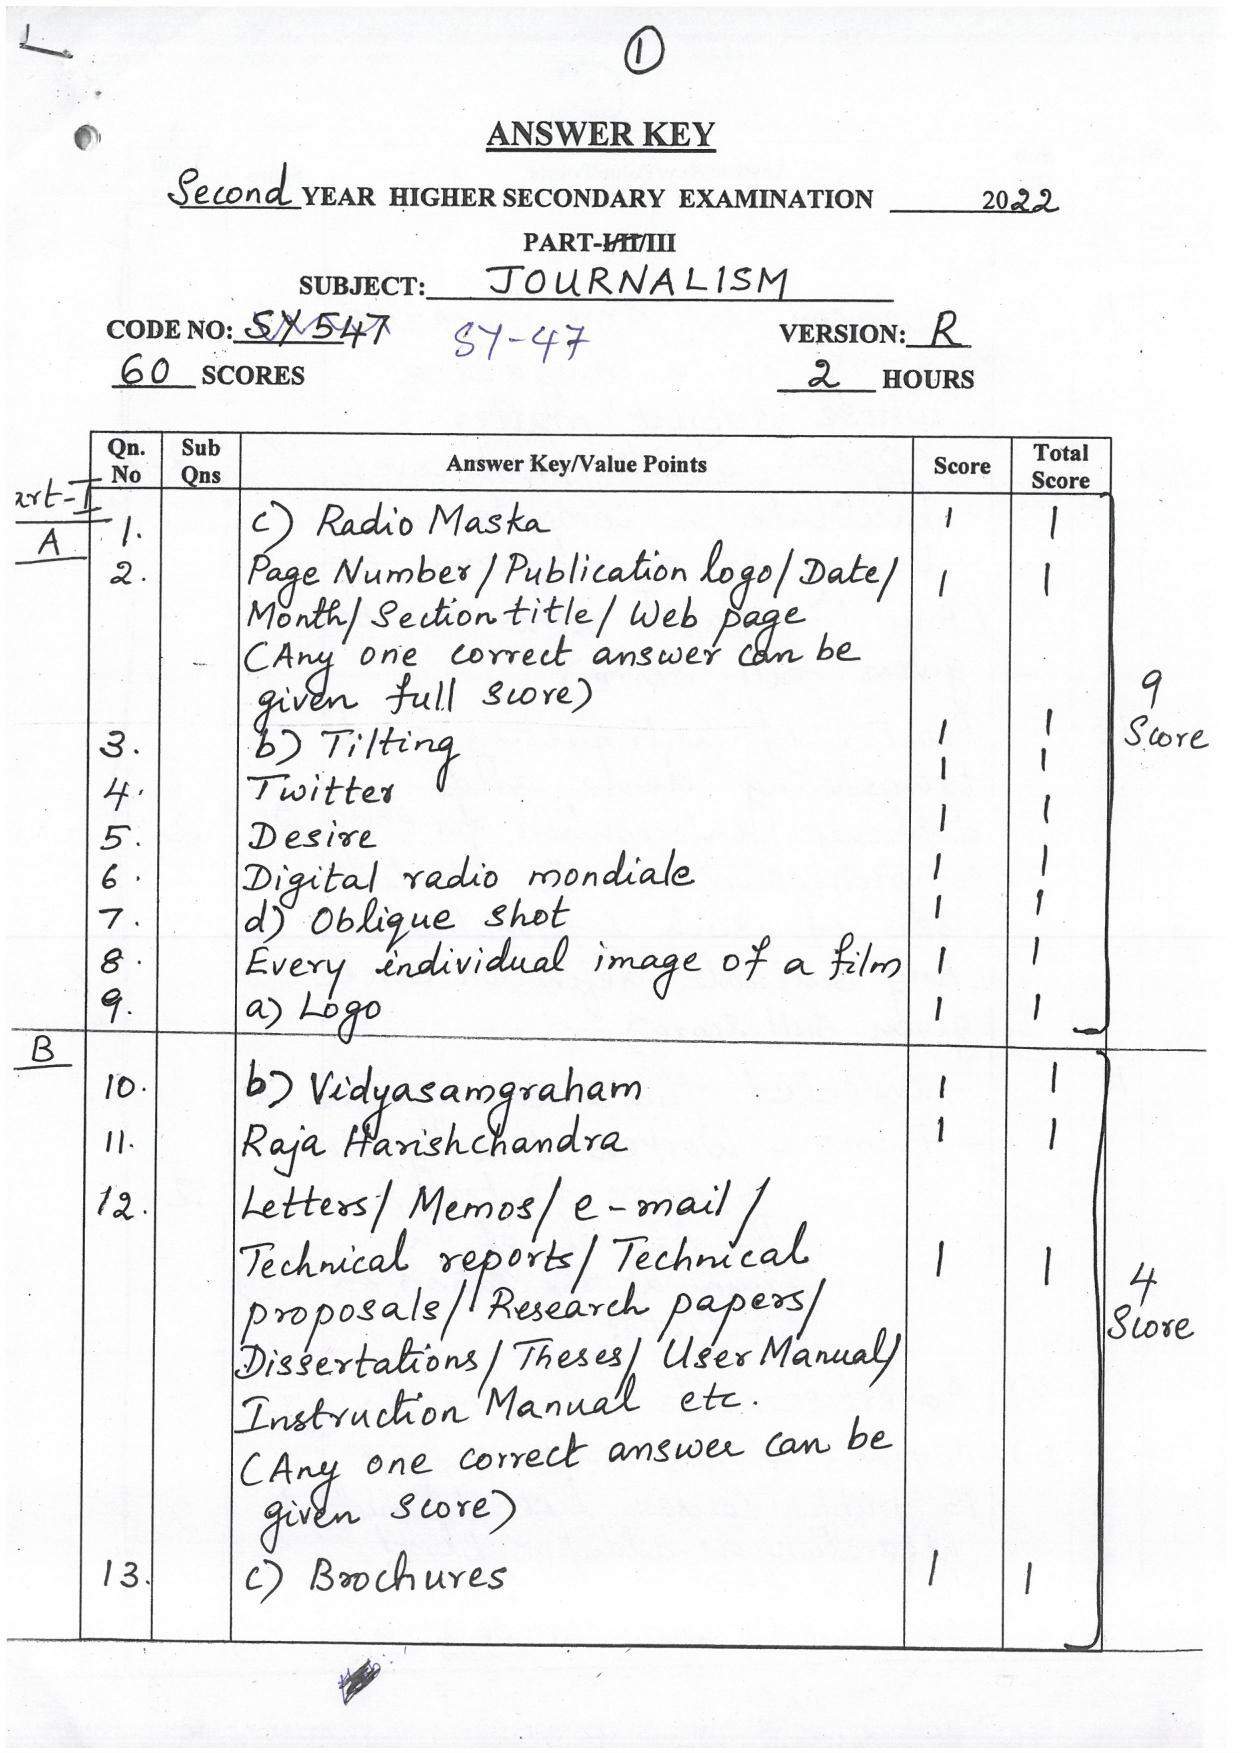 1
ANSWER KEY
Second YEAR HIGHER SECONDARY EXAMINATION 2022
PART-I/II/III
SUBJECT: JOURNALISM
CODE NO: SY547 SY-47 VERSION: R
60 SCORES 2 HOURS
Qn. No Sub Qns Answer Key/Value Points Score Total Score
art-I
A
1. c) Radio Maska 1 1
2. Page Number/Publication logo/Date/ 1 1
Month/Section title/Web page
(Any one correct answer can be
given full score)
9 Score
3. b) Tilting 1 1
4. Twitter 1 1
5. Desire 1 1
6. Digital radio mondiale 1 1
7. d) Oblique shot 1 1
8. Every individual image of a film 1 1
9. a) Logo 1 1
B
10. b) Vidyasamgraham 1 1
11. Raja Harishchandra 1 1
12. Letters/Memos/e-mail/
Technical reports/Technical 1 1
proposals/Research papers/
4 Score
Dissertations/Theses/User Manual/
Instruction Manual etc.
(Any one correct answer can be
given score)
13. c) Brochures 1 1